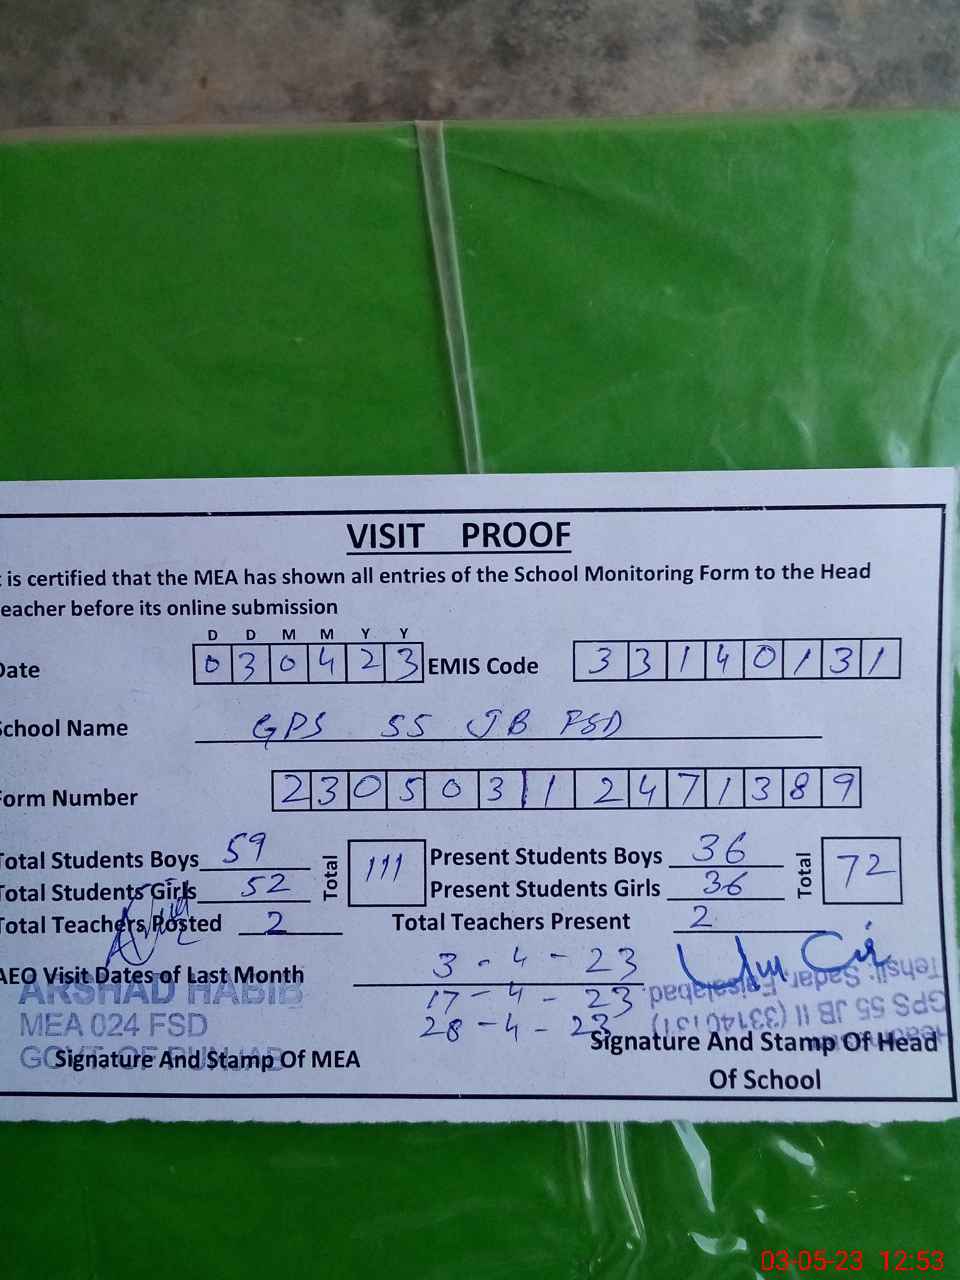 VISIT PROOF
t is certified that the MEA has shown all entries of the School Monitoring Form to the Head
eacher before its online submission
D D M M Y Y
Date 0 3 0 4 2 3 EMIS Code 3 3 1 4 0 1 3 1
School Name GPS 55 JB FSD
Form Number 2 3 0 5 0 3 1 2 4 7 1 3 8 9
Total Students Boys 59 Total 111 Present Students Boys 36 Total 72
Total Students Girls 52 Present Students Girls 36
Total Teachers Posted 2 Total Teachers Present 2
AEO Visit Dates of Last Month 3-4-23
17-4-23
28-4-23
ARSHAD HABIB
MEA 024 FSD
GOVT. OF PUNJAB
Signature And Stamp Of MEA
Tehsil: Sadar, Faisalabad
GPS 55 JB II (33140131)
Signature And Stamp Of Head
Of School
03-05-23 12:53